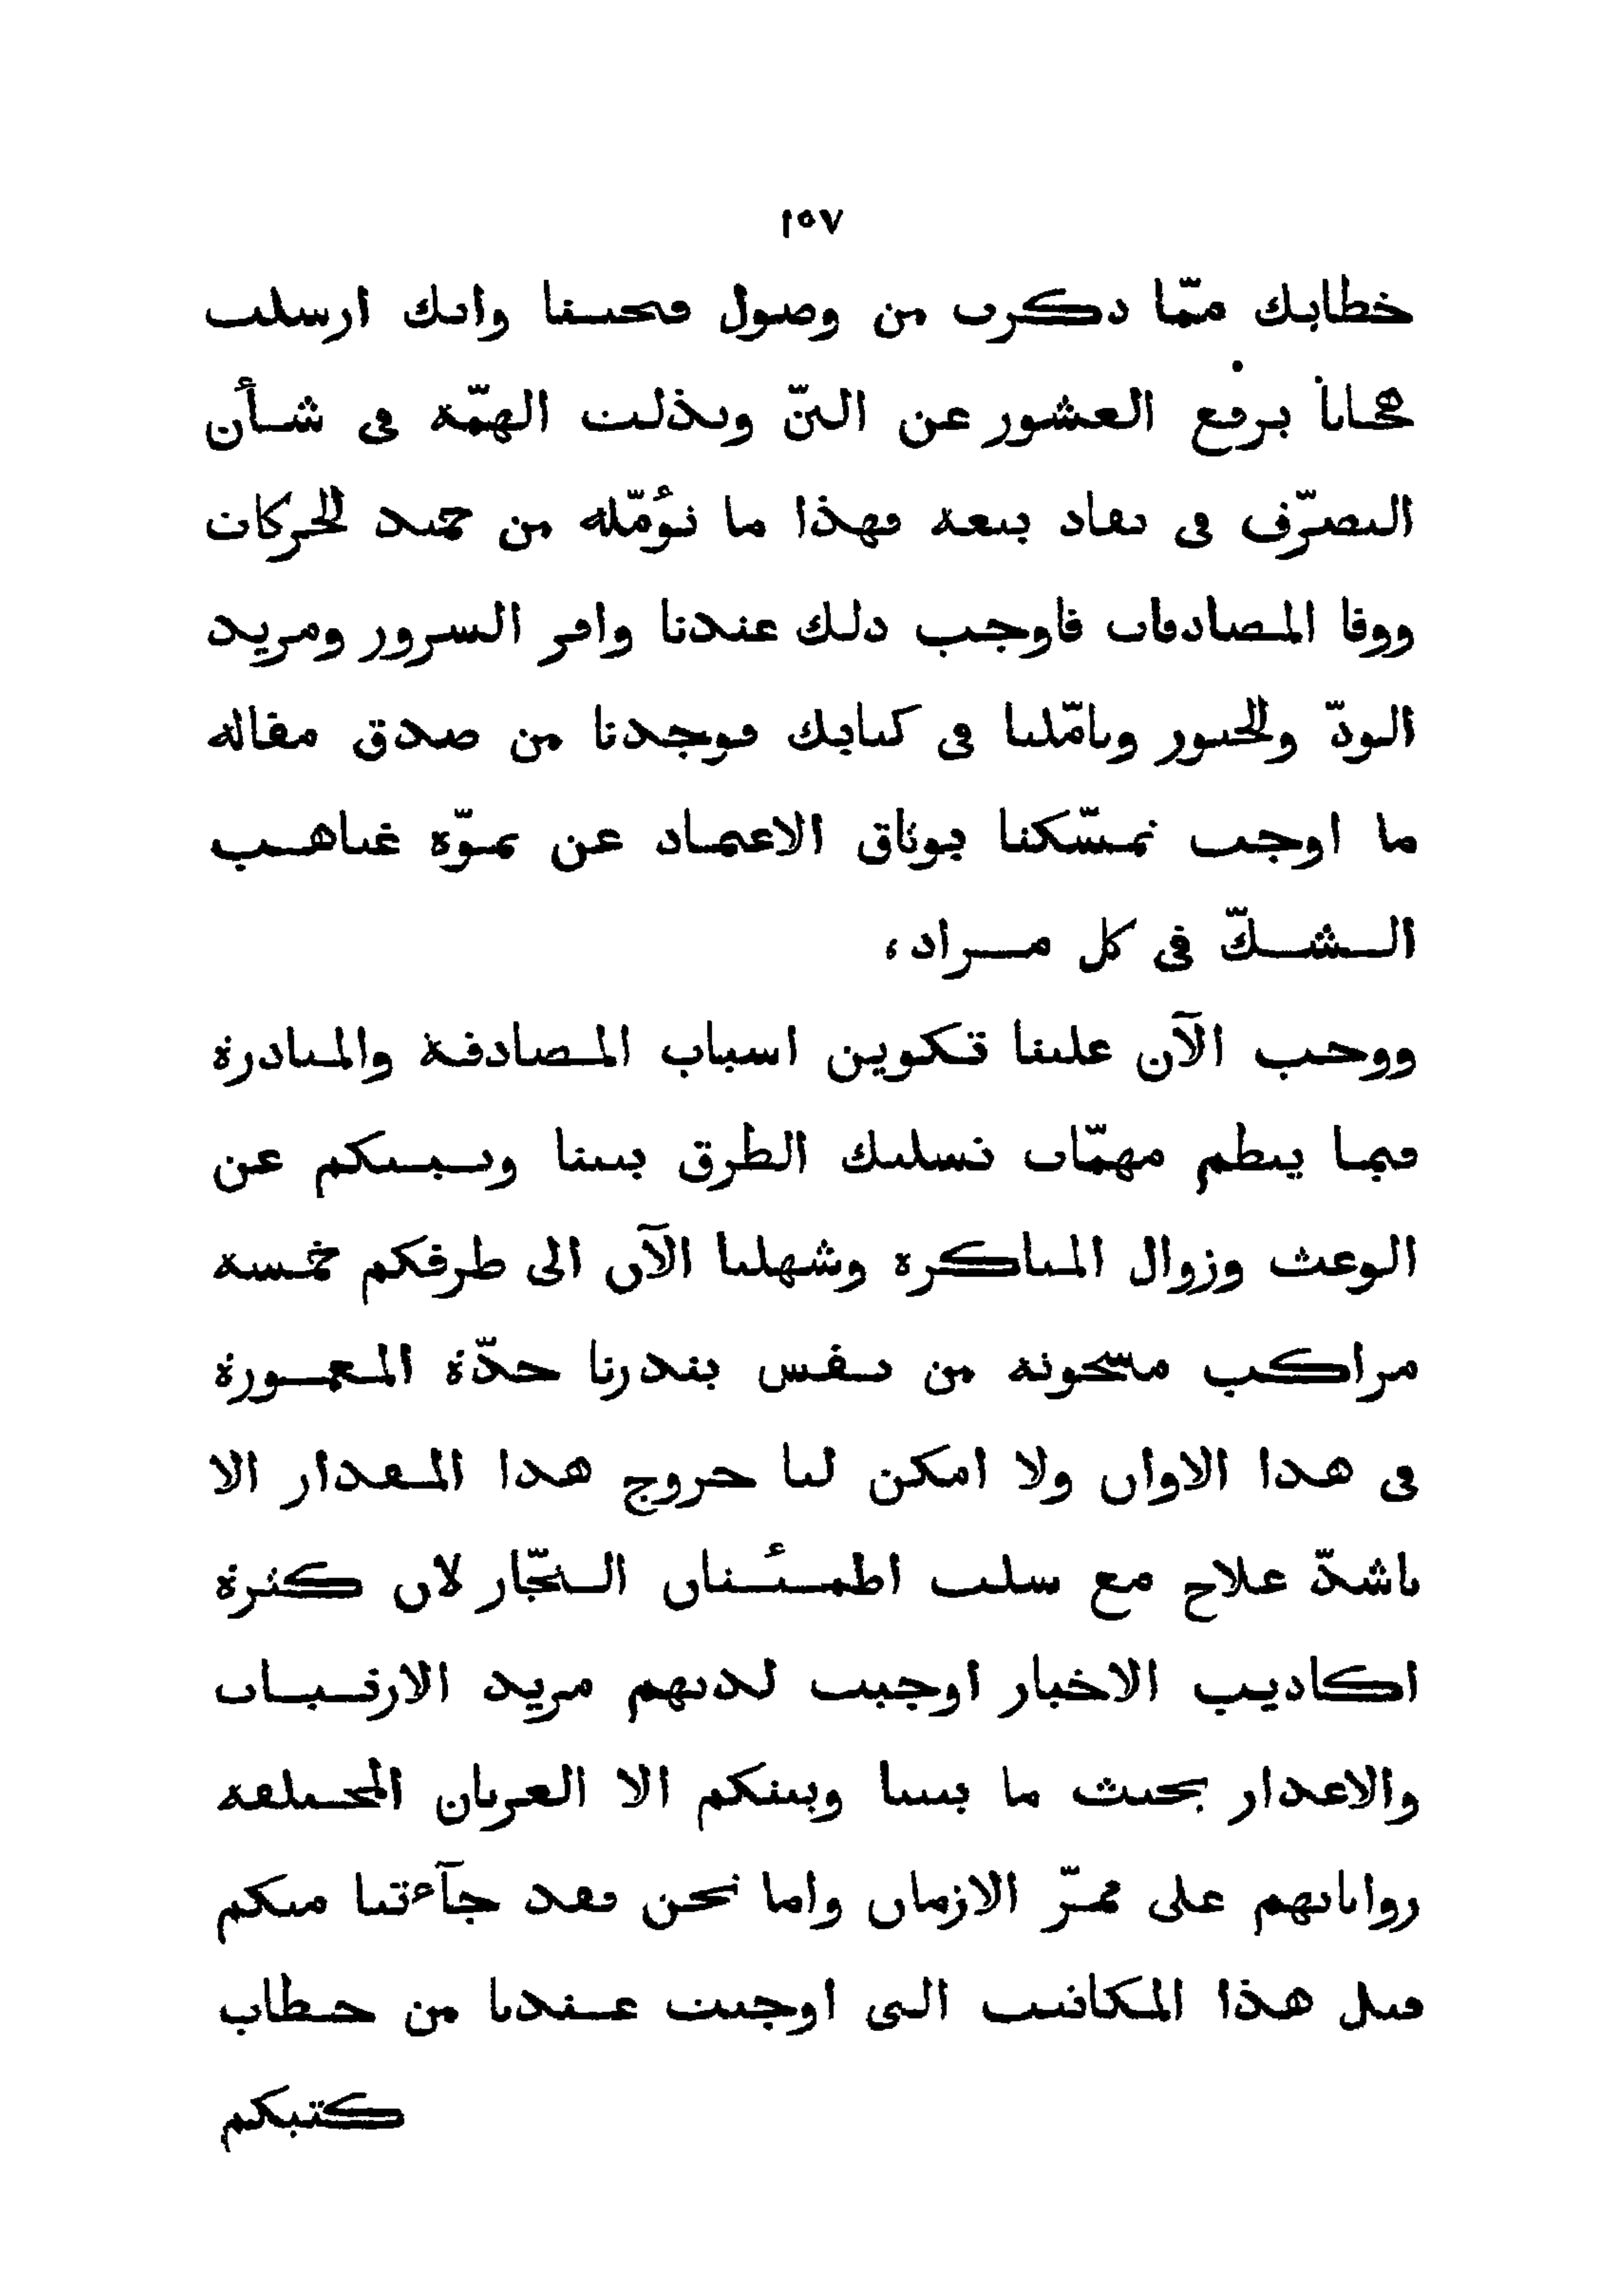 ١٥٧
خطابك ممّا ذكرت من وصول محبنا وانك ارسلت
هجانا برفع العشور عن البنّ وبذلت الهمّة فى شأن
التصرّف فى نفاد بيعه فهذا ما نؤمّله من حميد الحركات
ووفا المصادقات فاوجب ذلك عندنا وافر السرور ومزيد
الودّ والحبور وتامّلنا فى كتابك فوجدنا من صدق مقاله
ما اوجب تمسّكنا بوثاق الاعتماد عن تموّه غياهب
الشكّ فى كل مراد،
ووجب الآن علينا تكوين اسباب المصادقة والمبادرة
فيما ينظم مهمّات تسليك الطرق بيننا وبينكم عن
الوعث وزوال المناكرة وشهلنا الآن الى طرفكم خمسة
مراكب مشحونة من نفس بندرنا جدّة المعمورة
فى هذا الاوان ولا امكن لنا خروج هذا المقدار الا
باشدّ علاج مع سلب اطمئنان التجّار لان كثرة
اكاذيب الاخبار اوجبت لديهم مزيد الارتياب
والاعذار بحيث ما بيننا وبينكم الا العربان المختلفة
رواياتهم على ممرّ الازمان واما نحن فقد جآءتنا منكم
قبل هذا المكاتيب التى اوجبت عندنا من خطاب
كتبكم